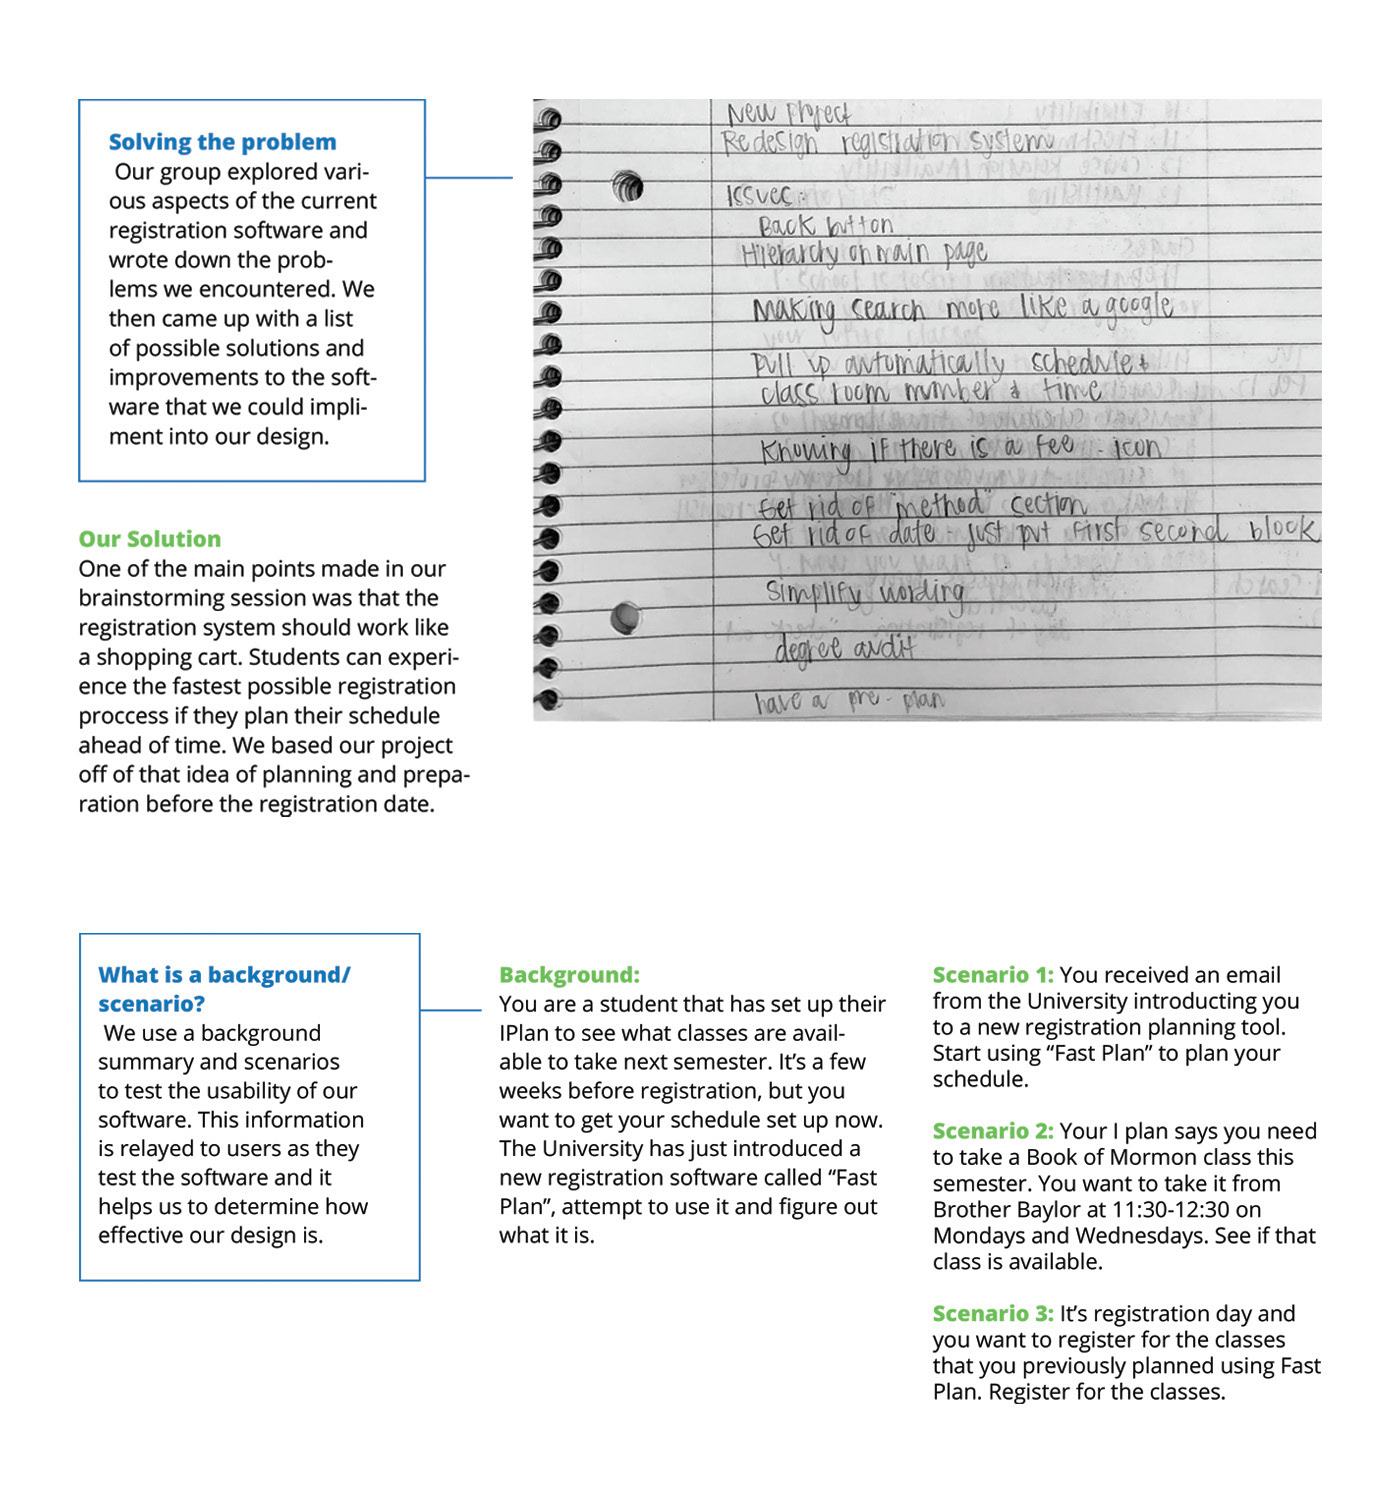 Solving the problem
Our group explored vari-
ous aspects of the current
registration software and
wrote down the prob-
lems we encountered. We
then came up with a list
of possible solutions and
improvements to the soft-
ware that we could impli-
ment into our design.
New Project
Redesign registration system
Issues:
Back button
Hierarchy on main page
Making search more like a google
Pull up automatically schedule &
class room number & time
Knowing if there is a fee - icon
Get rid of "method" section
Get rid of date - just put first second block
Simplify wording
degree audit
have a pre-plan
Our Solution
One of the main points made in our
brainstorming session was that the
registration system should work like
a shopping cart. Students can experi-
ence the fastest possible registration
proccess if they plan their schedule
ahead of time. We based our project
off of that idea of planning and prepa-
ration before the registration date.
What is a background/
scenario?
We use a background
summary and scenarios
to test the usability of our
software. This information
is relayed to users as they
test the software and it
helps us to determine how
effective our design is.
Background:
You are a student that has set up their
IPlan to see what classes are avail-
able to take next semester. It’s a few
weeks before registration, but you
want to get your schedule set up now.
The University has just introduced a
new registration software called “Fast
Plan”, attempt to use it and figure out
what it is.
Scenario 1: You received an email
from the University introducting you
to a new registration planning tool.
Start using “Fast Plan” to plan your
schedule.
Scenario 2: Your I plan says you need
to take a Book of Mormon class this
semester. You want to take it from
Brother Baylor at 11:30-12:30 on
Mondays and Wednesdays. See if that
class is available.
Scenario 3: It’s registration day and
you want to register for the classes
that you previously planned using Fast
Plan. Register for the classes.